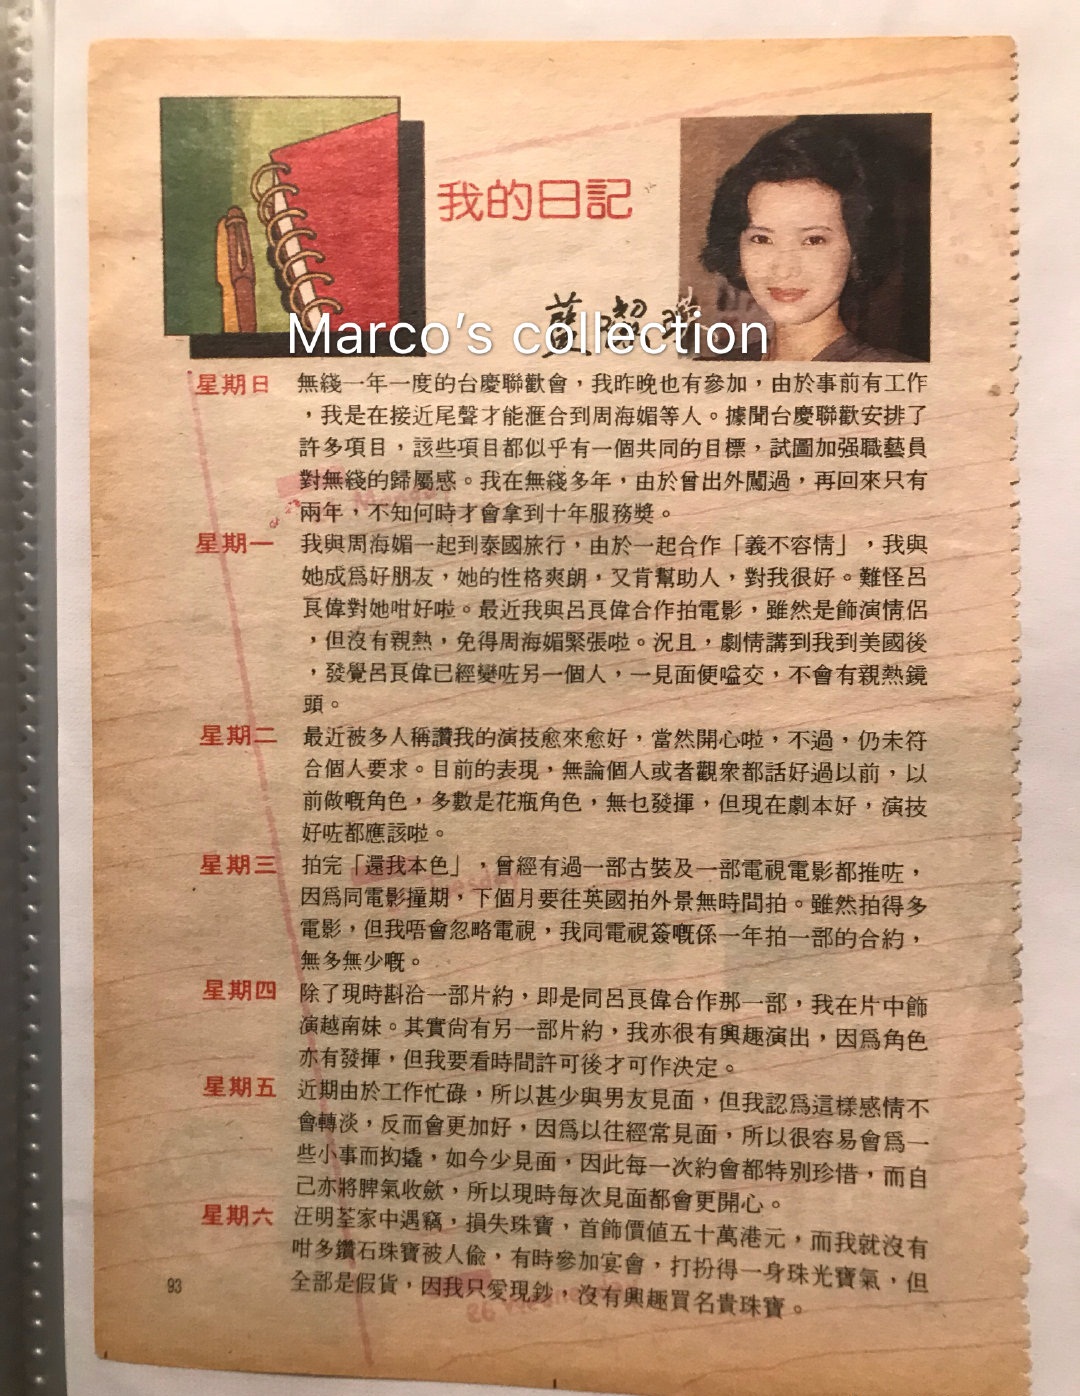 我的日記
藍潔瑛
Marco's collection
星期日 無綫一年一度的台慶聯歡會，我昨晚也有參加，由於事前有工作
，我是在接近尾聲才能滙合到周海媚等人。據聞台慶聯歡安排了
許多項目，該些項目都似乎有一個共同的目標，試圖加强職藝員
對無綫的歸屬感。我在無綫多年，由於曾出外闖過，再回來只有
兩年，不知何時才會拿到十年服務獎。
星期一 我與周海媚一起到泰國旅行，由於一起合作「義不容情」，我與
她成爲好朋友，她的性格爽朗，又肯幫助人，對我很好。難怪呂
良偉對她咁好啦。最近我與呂良偉合作拍電影，雖然是飾演情侶
，但沒有親熱，免得周海媚緊張啦。況且，劇情講到我到美國後
，發覺呂良偉已經變咗另一個人，一見面便嗌交，不會有親熱鏡
頭。
星期二 最近被多人稱讚我的演技愈來愈好，當然開心啦，不過，仍未符
合個人要求。目前的表現，無論個人或者觀衆都話好過以前，以
前做嘅角色，多數是花瓶角色，無乜發揮，但現在劇本好，演技
好咗都應該啦。
星期三 拍完「還我本色」，曾經有過一部古裝及一部電視電影都推咗，
因爲同電影撞期，下個月要往英國拍外景無時間拍。雖然拍得多
電影，但我唔會忽略電視，我同電視簽嘅係一年拍一部的合約，
無多無少嘅。
星期四 除了現時斟洽一部片約，即是同呂良偉合作那一部，我在片中飾
演越南妹。其實尚有另一部片約，我亦很有興趣演出，因爲角色
亦有發揮，但我要看時間許可後才可作決定。
星期五 近期由於工作忙碌，所以甚少與男友見面，但我認爲這樣感情不
會轉淡，反而會更加好，因爲以往經常見面，所以很容易會爲一
些小事而拗撬，如今少見面，因此每一次約會都特別珍惜，而自
己亦將脾氣收歛，所以現時每次見面都會更開心。
星期六 汪明荃家中遇竊，損失珠寶，首飾價值五十萬港元，而我就沒有
咁多鑽石珠寶被人偷，有時參加宴會，打扮得一身珠光寶氣，但
全部是假貨，因我只愛現鈔，沒有興趣買名貴珠寶。
93